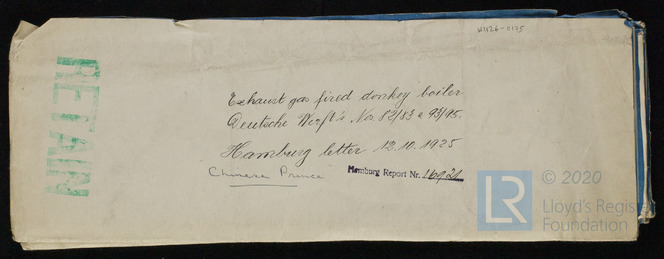 W426-0175
RETAIN
Exhaust gas fired donkey boiler
Deutsche Werft's Nos 82/83 & 93/95.
Hamburg letter 12.10.1925
Chinese Prince Hamburg Report Nr. 16921
LR © 2020
Lloyd's Register
Foundation